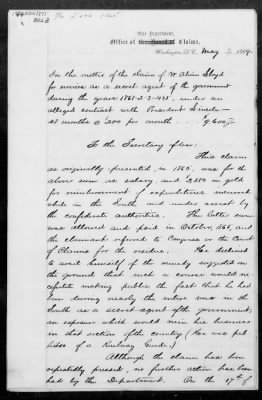 War Department,
Office of Claims,
Washington, D.C. May 2, 1889.
In the matter of the claim of W. Alvin Lloyd
for service as a secret agent of the government
during the years 1861-2-3-4 & 5, under an
alleged contract with President Lincoln—
48 months @ 200 per month . . . $9,600.
To the Secretary of War.
This claim
as originally presented, in 1865, was for the
above sum as salary, and $2,380 in gold
for reimbursement of expenditures incurred
while in the South and under arrest by
the confederate authorities. The latter sum
was allowed and paid in October, 1865, and
the claimant referred to Congress or the Court
of Claims for the residue. He declined
to avail himself of the remedy suggested on
the ground that such a course would ne-
cessitate making public the fact that he had
been during nearly the entire war in the
South as a secret agent of the government,
an exposure which would ruin his business
in that section of the country (He was pub-
lisher of a Railway Guide.)
Although the claim has been
repeatedly pressed, no further action has been
had by the Department. On the 17th of